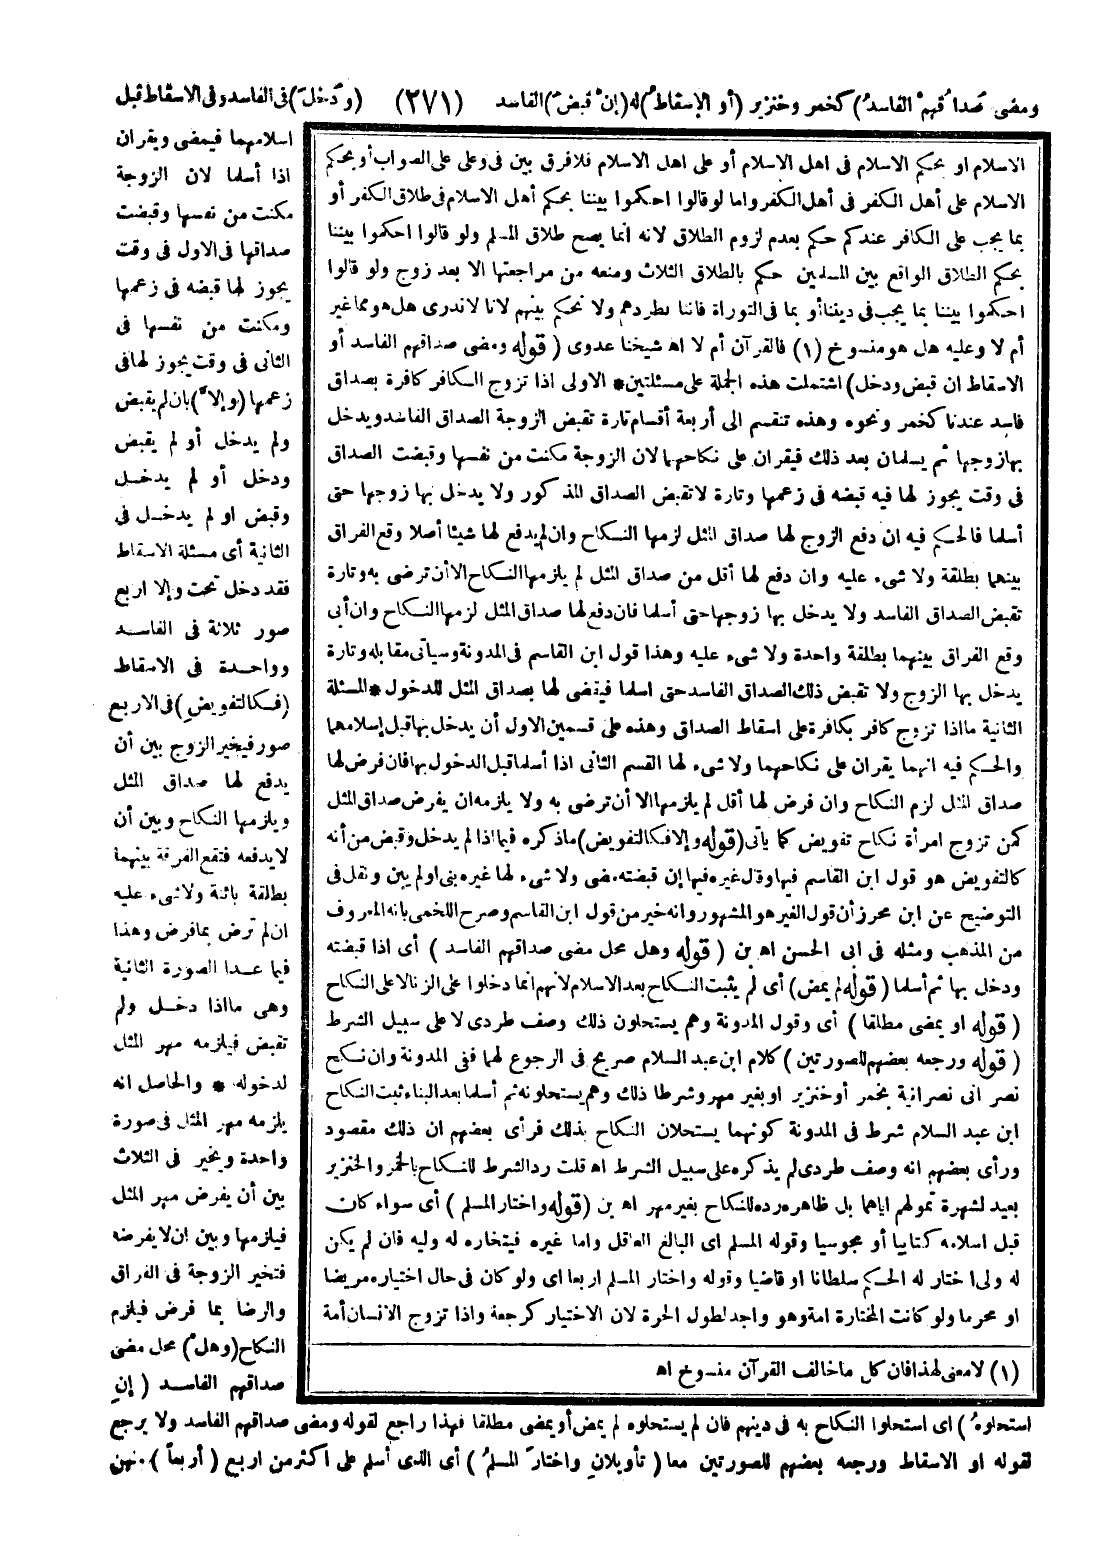 ومضى صَداقهمْ الفاسدُ) كخمر وخنزير (أو الإسقاطُ) له (إنْ قبضَ) الفاسد (٢٧١) (ودَخلَ) فى الفاسد وفى الاسقاط قبل
اسلامهما فيمضى ويقران
اذا أسلما لان الزوجة
مكنت من نفسها وقبضت
صداقها فى الاول فى وقت
يجوز لها قبضه فى زعمها
ومكنت من نفسها فى
الثانى فى وقت يجوز لها فى
زعمها (وإلاَّ) بان لم يقبض
ولم يدخل أو لم يقبض
ودخل أو لم يدخل
وقبض او لم يدخل فى
الثانية أى مسئلة الاسقاط
فقد دخل تحت وإلا اربع
صور ثلاثة فى الفاسد
وواحدة فى الاسقاط
(فكالتفويضِ) فى الاربع
صور فيخير الزوج بين أن
يدفع لها صداق المثل
ويلزمها النكاح وبين أن
لا يدفعه فتقع الفرقة بينهما
بطلقة بائنة ولاشىء عليه
ان لم ترض بما فرض وهذا
فيما عدا الصورة الثانية
وهى ما اذا دخل ولم
تقبض فيلزمه مهر المثل
لدخوله * والحاصل انه
يلزمه مهر المثل فى صورة
واحدة ويخير فى الثلاث
بين أن يفرض مهر المثل
فيلزمها وبين ان لا يفرضه
فتخير الزوجة فى الفراق
والرضا بما فرض فيلزم
النكاح (وهلْ) محل مضى
صداقهم الفاسد (إنِ
الاسلام او بحكم الاسلام فى اهل الاسلام أو على اهل الاسلام فلافرق بين فى وعلى على الصواب أو بحكم
الاسلام على أهل الكفر فى أهل الكفر واما لو قالوا احكموا بيننا بحكم أهل الاسلام فى طلاق الكفر أو
بما يجب على الكافر عندكم حكم بعدم لزوم الطلاق لانه انما يصح طلاق المسلم ولو قالوا احكموا بيننا
بحكم الطلاق الواقع بين المسلمين حكم بالطلاق الثلاث ومنعه من مراجعتها الا بعد زوج ولو قالوا
احكموا بيننا بما يجب فى ديننا أو بما فى التوراة فاننا نطردهم ولا نحكم بينهم لانا لا ندرى هل هو مما غير
أم لا وعليه هل هو منسوخ (١) فالقرآن أم لا اه شيخنا عدوى (قوله ومضى صداقهم الفاسد أو
الاسقاط ان قبض ودخل) اشتملت هذه الجملة على مسئلتين * الاولى اذا تزوج الكافر كافرة بصداق
فاسد عندنا كخمر ونحوه وهذه تنقسم الى أربعة أقسام تارة تقبض الزوجة الصداق الفاسد ويدخل
بها زوجها ثم يسلمان بعد ذلك فيقران على نكاحهما لان الزوجة مكنت من نفسها وقبضت الصداق
فى وقت يجوز لها فيه قبضه فى زعمها وتارة لا تقبض الصداق المذكور ولا يدخل بها زوجها حتى
أسلما فالحكم فيه ان دفع الزوج لها صداق المثل لزمها النكاح وان لم يدفع لها شيئا أصلا وقع الفراق
بينهما بطلقة ولا شىء عليه وان دفع لها أقل من صداق المثل لم يلزمها النكاح الا أن ترضى به وتارة
تقبض الصداق الفاسد ولا يدخل بها زوجها حتى أسلما فان دفع لها صداق المثل لزمها النكاح وان أبى
وقع الفراق بينهما بطلقة واحدة ولا شىء عليه وهذا قول ابن القاسم فى المدونة وسيأتى مقابله وتارة
يدخل بها الزوج ولا تقبض ذلك الصداق الفاسد حتى اسلما فيقضى لها بصداق المثل للدخول * المسئلة
الثانية ما اذا تزوج كافر بكافرة على اسقاط الصداق وهذه على قسمين الاول أن يدخل بها قبل إسلامهما
والحكم فيه انهما يقران على نكاحهما ولا شىء لها القسم الثانى اذا أسلما قبل الدخول بها فان فرض لها
صداق المثل لزم النكاح وان فرض لها أقل لم يلزمها الا أن ترضى به ولا يلزمه ان يفرض صداق المثل
كمن تزوج امرأة نكاح تفويض كما يأتى (قوله وإلا فكالتفويض) ما ذكره فيما اذا لم يدخل وقبض من أنه
كالتفويض هو قول ابن القاسم فيها وقال غيره فيها إن قبضته مضى ولا شىء لها غيره بنى او لم يبن ونقل فى
التوضيح عن ابن محرز أن قول الغير هو المشهور وانه خير من قول ابن القاسم وصرح اللخمى بانه المعروف
من المذهب ومثله فى ابى الحسن اه بن (قوله وهل محل مضى صداقهم الفاسد) أى اذا قبضته
ودخل بها ثم أسلما (قوله لم يمض) أى لم يثبت النكاح بعد الاسلام لانهم انما دخلوا على الزنا لا على النكاح
(قوله او يمضى مطلقا) أى وقول المدونة وهم يستحلون ذلك وصف طردى لا على سبيل الشرط
(قوله ورجعه بعضهم للصورتين) كلام ابن عبد السلام صريح فى الرجوع لهما ففى المدونة وان نكح
نصرانى نصرانية بخمر أو خنزير او بغير مهر وشرطا ذلك وهم يستحلونه ثم أسلما بعد البناء ثبت النكاح
ابن عبد السلام شرط فى المدونة كونهما يستحلان النكاح بذلك فرأى بعضهم ان ذلك مقصود
ورأى بعضهم انه وصف طردى لم يذكره على سبيل الشرط اه قلت رد الشرط للنكاح بالخمر والخنزير
بعيد لشهرة تمولهم اياهما بل ظاهره رده للنكاح بغير مهر اه بن (قوله واختار المسلم) أى سواء كان
قبل اسلامه كتابيا أو مجوسيا وقوله المسلم اى البالغ العاقل واما غيره فيختاره له وليه فان لم يكن
له ولى اختار له الحكم سلطانا او قاضيا وقوله واختار المسلم اربعا اى ولو كان فى حال اختياره مريضا
او محرما ولو كانت المختارة امة وهو واجد لطول الحرة لان الاختيار كرجعة واذا تزوج الانسان أمة
(١) لا معنى لهذا فان كل ما خالف القرآن منسوخ اه
استحلوهُ) اى استحلوا النكاح به فى دينهم فان لم يستحلوه لم يمض أو يمضى مطلقا فهذا راجع لقوله ومضى صداقهم الفاسد ولا يرجع
لقوله او الاسقاط ورجعه بعضهم للصورتين معا (تأويلانِ واختارَ المسلمُ) أى الذى أسلم على أكثر من اربع (أربعاً) منهن